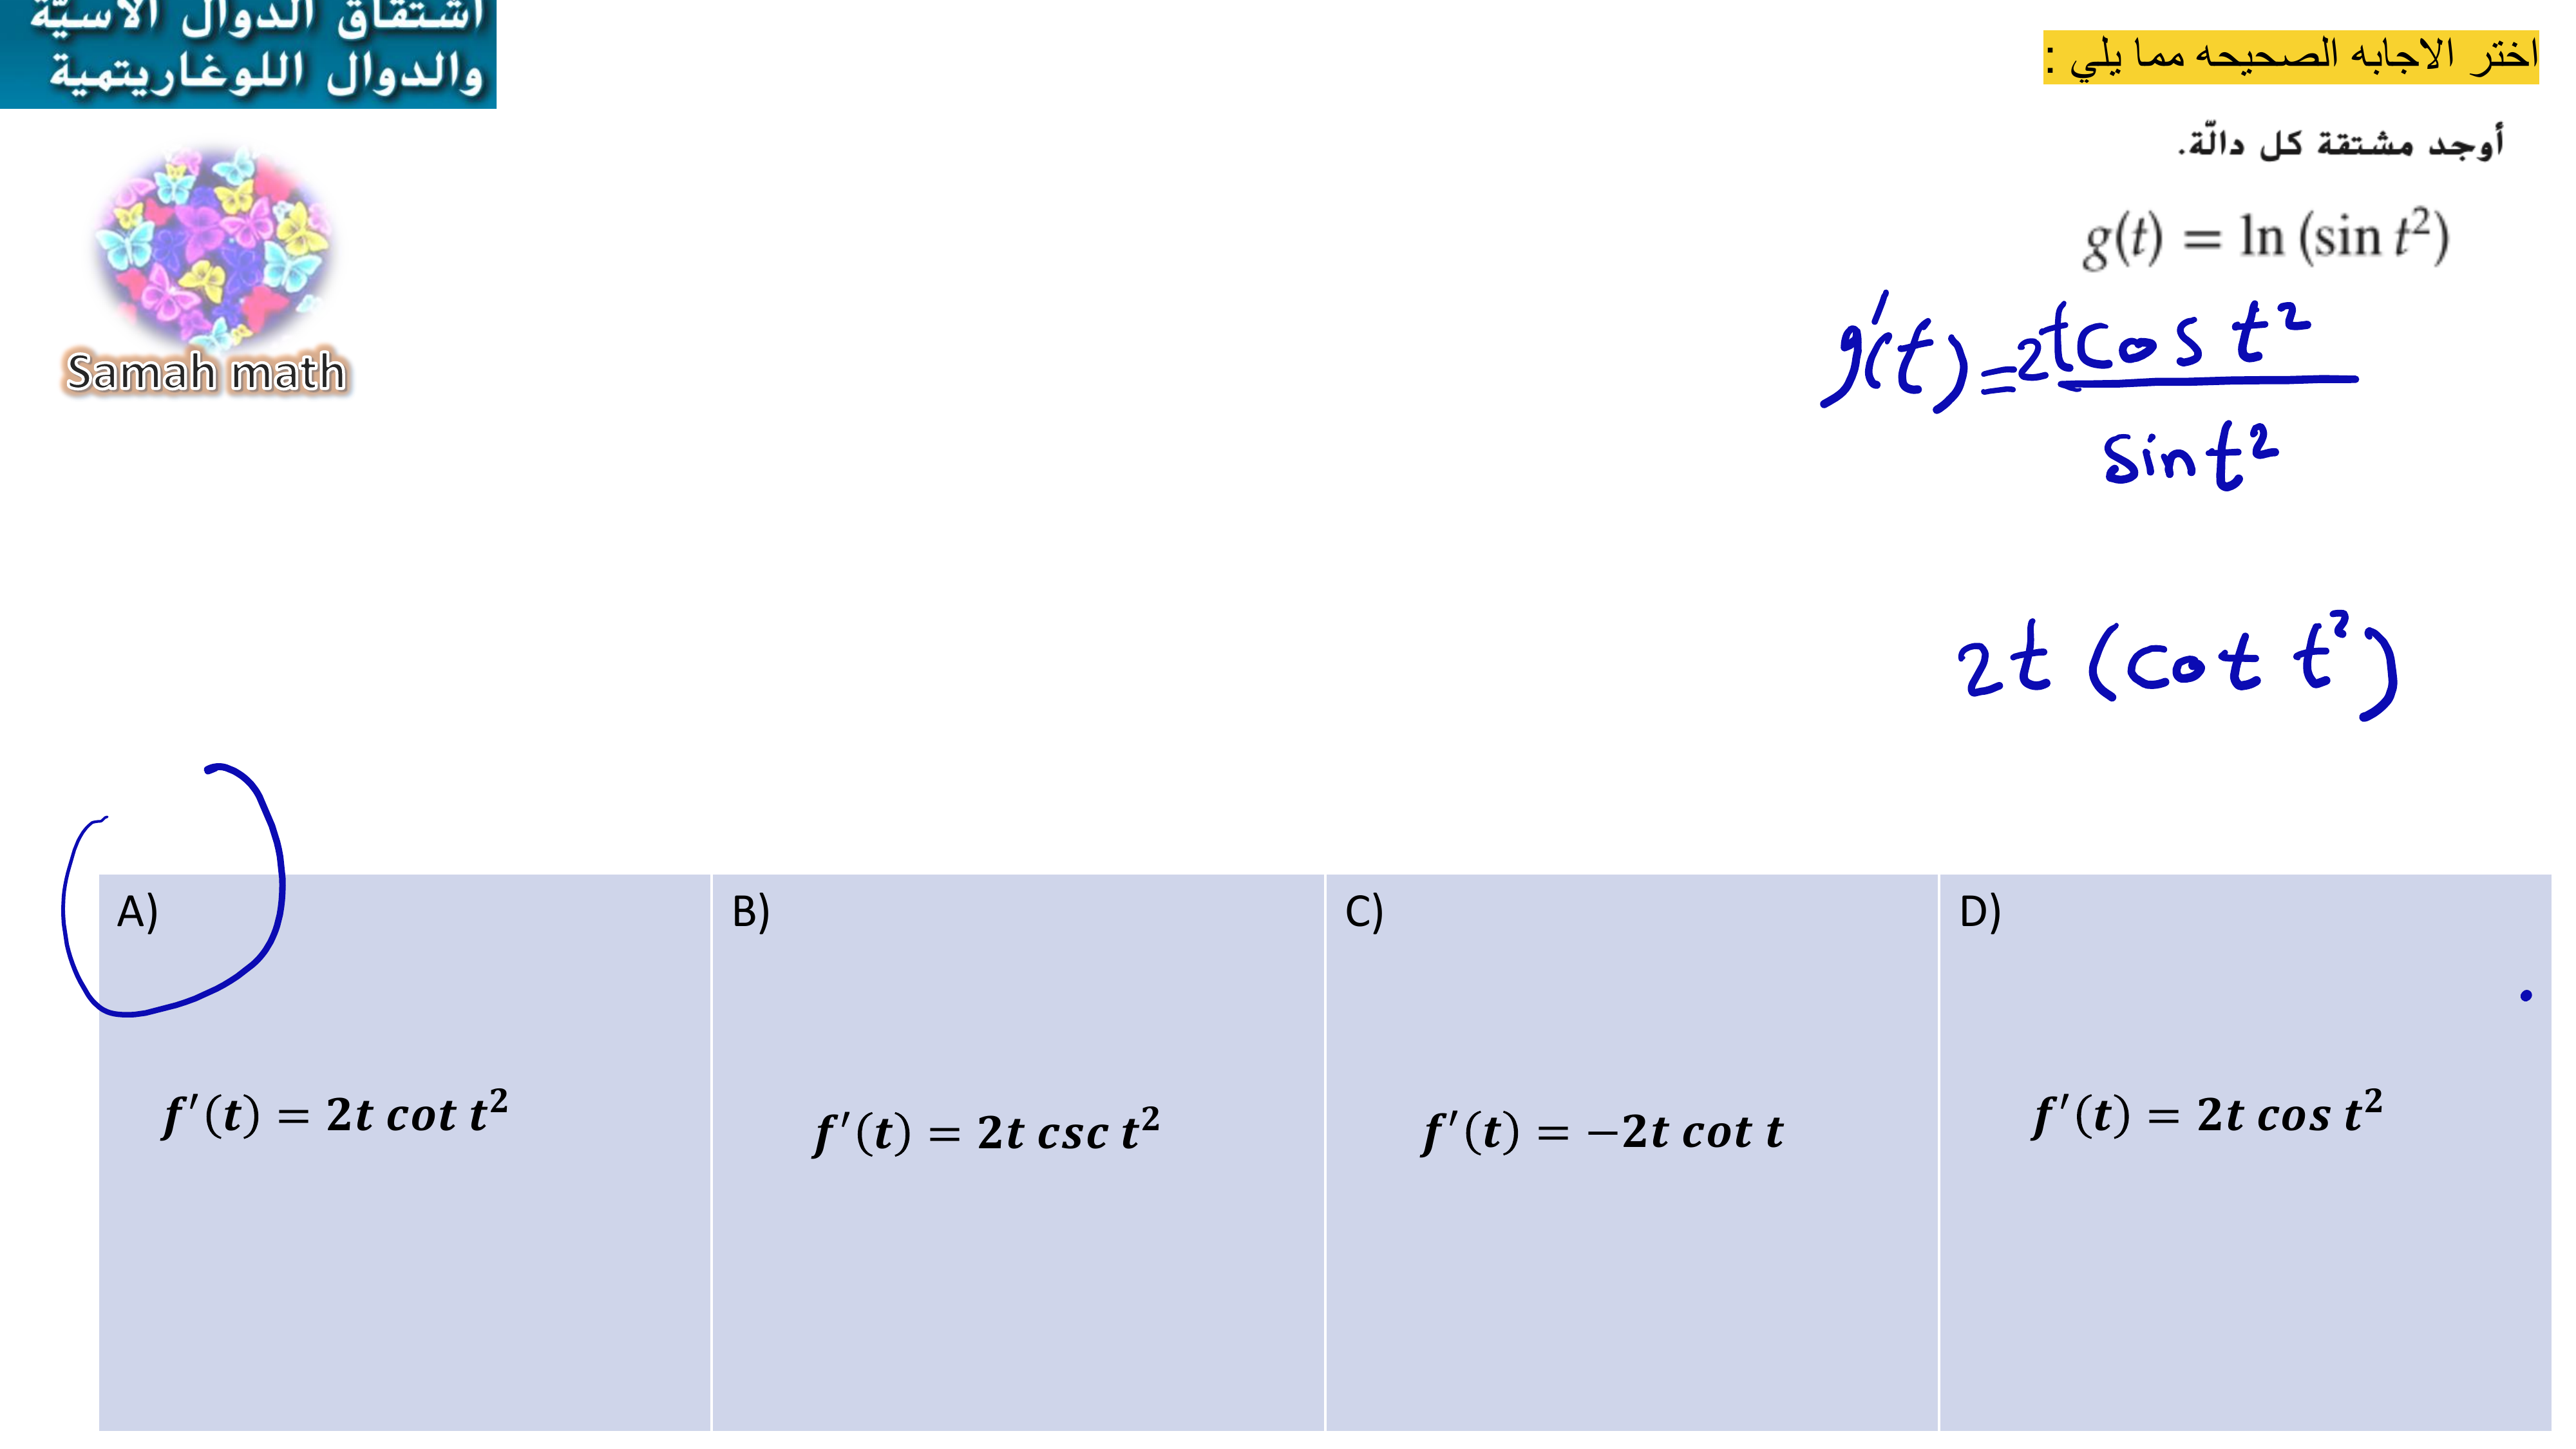 اشتقاق الدوال الأسيّة
والدوال اللوغاريتمية
اختر الاجابه الصحيحه مما يلي :
أوجد مشتقة كل دالّة.
g(t) = ln (sin t²)
Samah math
g'(t) = 2t cos t²
sin t²
2t (cot t²)
A)
f′(t) = 2t cot t²
B)
f′(t) = 2t csc t²
C)
f′(t) = −2t cot t
D)
f′(t) = 2t cos t²